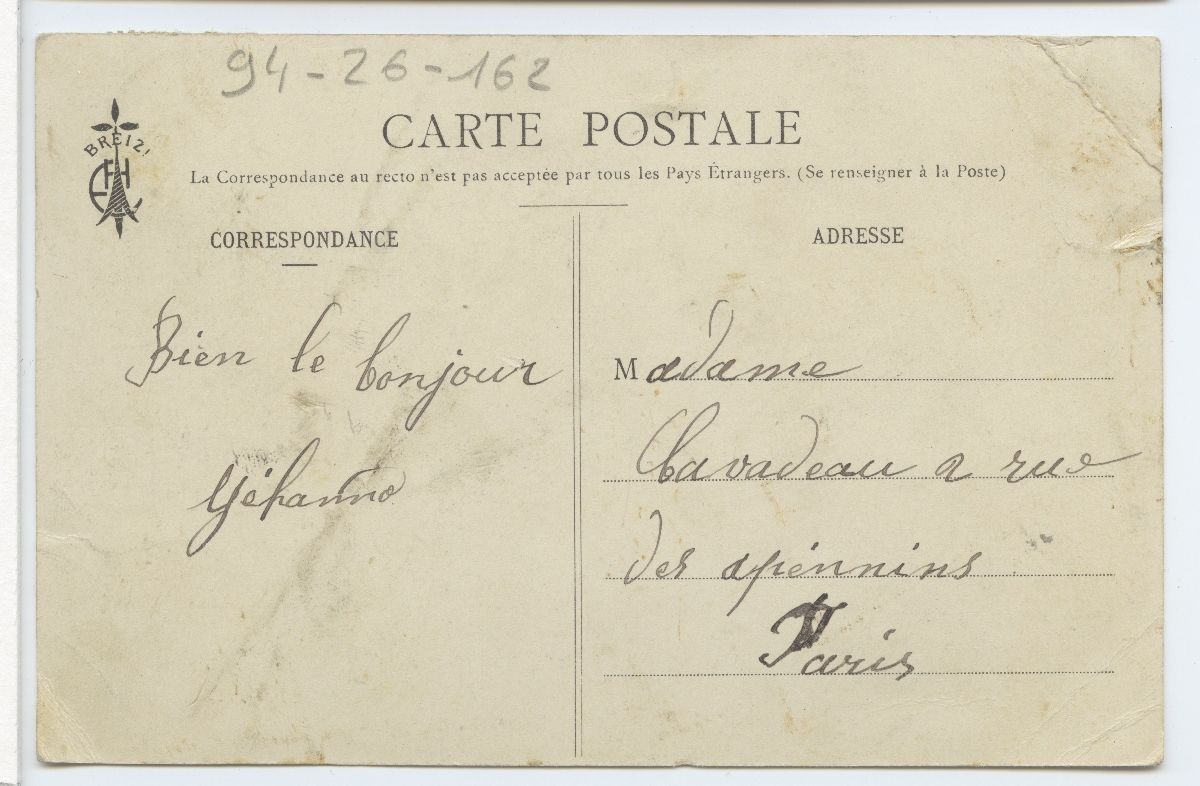 94-26-162
BREIZ!
CARTE POSTALE
La Correspondance au recto n'est pas acceptée par tous les Pays Étrangers. (Se renseigner à la Poste)
CORRESPONDANCE
Bien le bonjour
Géhanno
ADRESSE
Madame
Cavadeau 2 rue
des apénnins
Paris